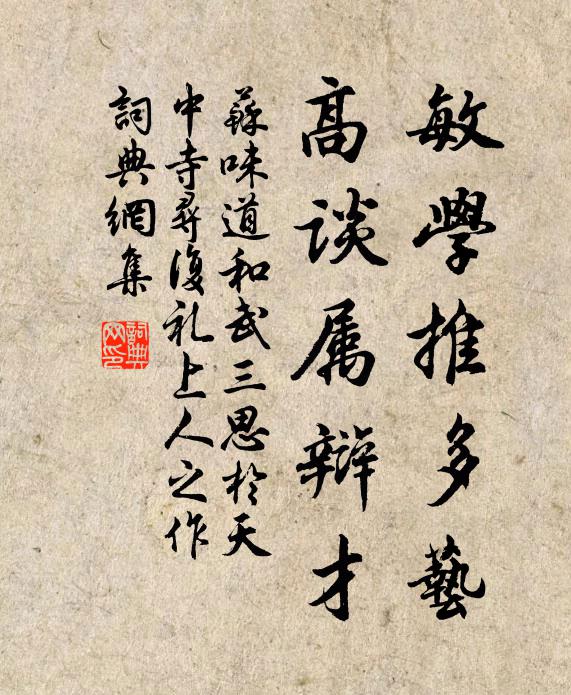 敏學推多藝
高談属辯才
蘇味道和武三思於天
中寺尋復礼上人之作
詞典網集
詞典网印